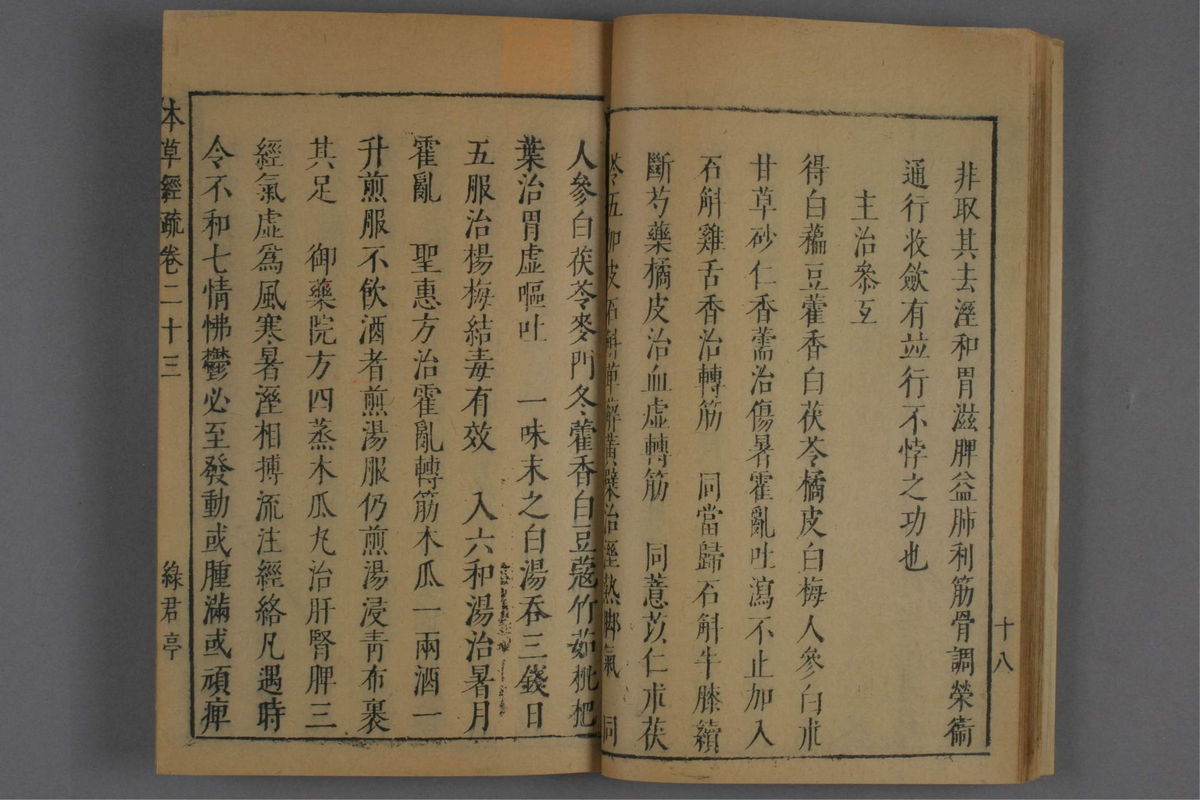 非取其去溼和胃滋脾益肺利筋骨調榮衛
通行收斂有並行不悖之功也
主治參互
得白藊豆藿香白茯苓橘皮白梅人參白朮
甘草砂仁香薷治傷暑霍亂吐瀉不止加入
石斛雞舌香治轉筋　同當歸石斛牛膝續
斷芍藥橘皮治血虛轉筋　同薏苡仁朮茯
苓五加皮石斛萆薢黃蘗治溼熱腳氣　同
十八
人參白茯苓麥門冬藿香白豆蔻竹茹枇杷
葉治胃虛嘔吐　一味末之白湯吞三錢日
五服治楊梅結毒有效　入六和湯治暑月
霍亂　聖惠方治霍亂轉筋木瓜一兩酒一
升煎服不飲酒者煎湯服仍煎湯浸青布裹
其足　御藥院方四蒸木瓜丸治肝腎脾三
經氣虛爲風寒暑溼相搏流注經絡凡遇時
令不和七情怫鬱必至發動或腫滿或頑痺
本草經疏卷二十三
綠君亭